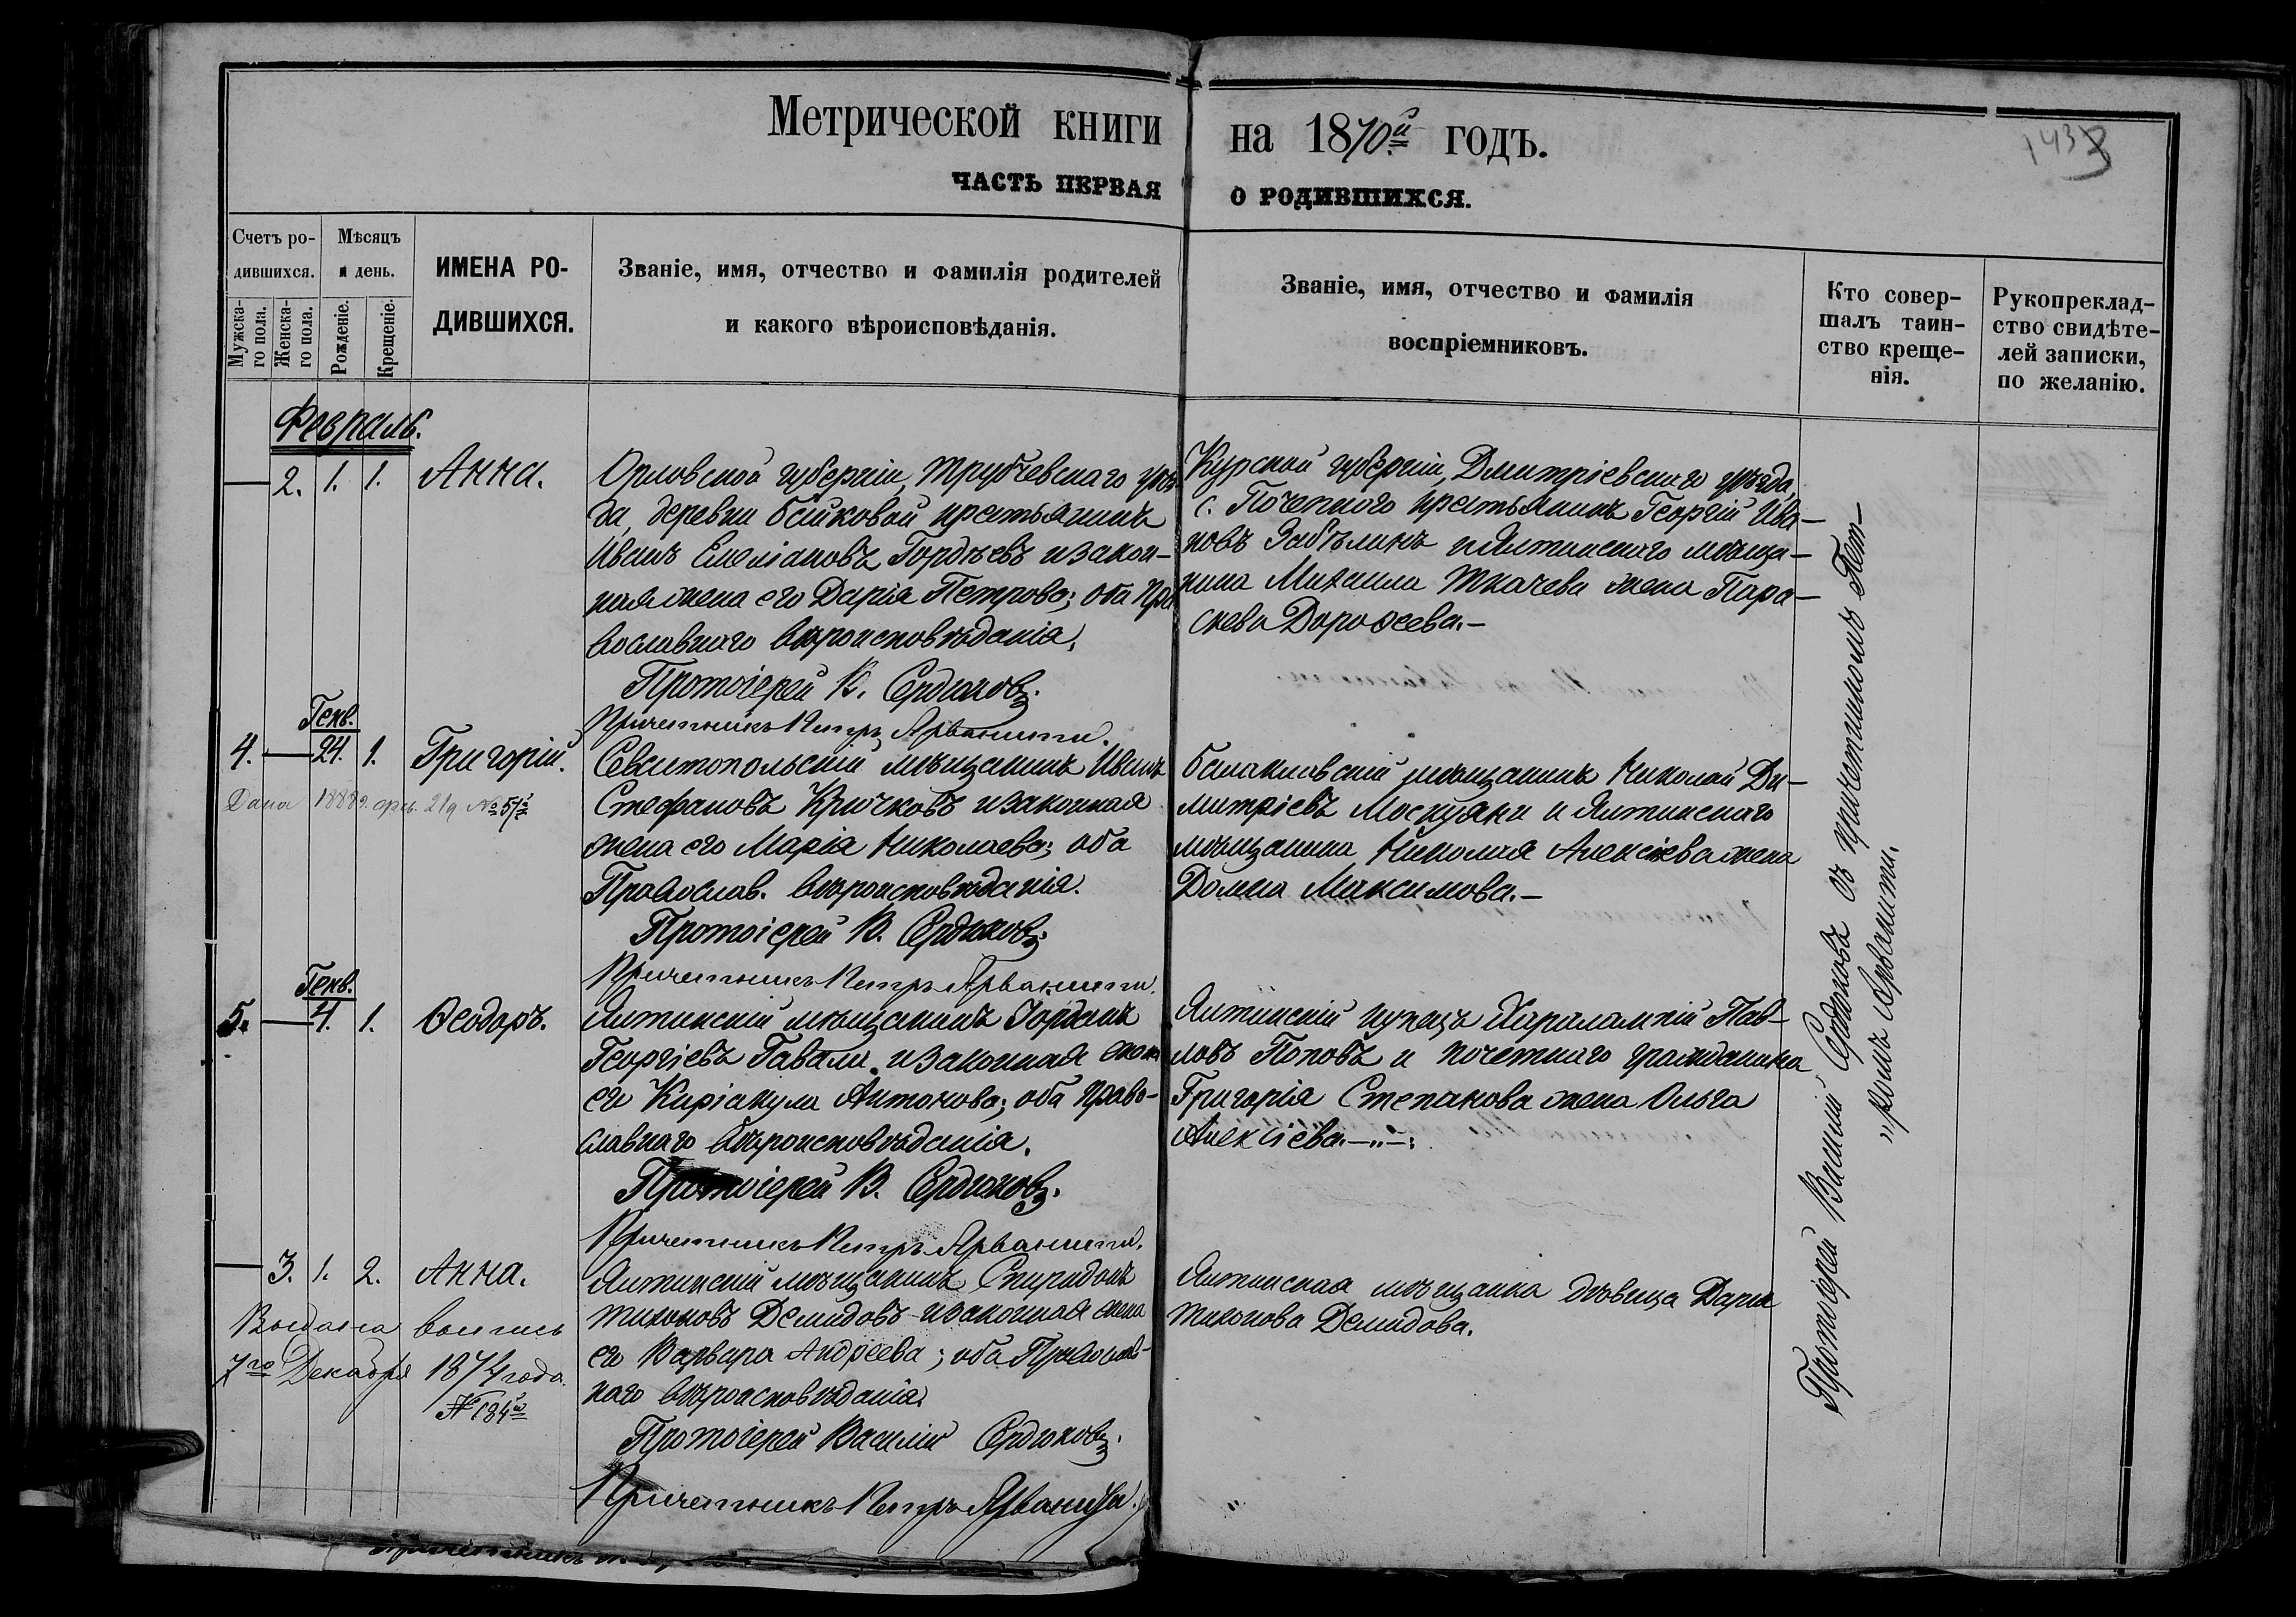 Метрической книги на 1870й годъ.
143
ЧАСТЬ ПЕРВАЯ О РОДИВШИХСЯ.
Счетъ ро-
дившихся.
Мѣсяцъ
и день.
Мужска-
го пола.
Женска-
го пола.
Рожденіе.
Крещеніе.
ИМЕНА РО-
ДИВШИХСЯ.
Званіе, имя, отчество и фамилія родителей
и какого вѣроисповѣданія.
Званіе, имя, отчество и фамилія
воспріемниковъ.
Кто совер-
шалъ таин-
ство креще-
нія.
Рукопреклад-
ство свидѣте-
лей записки,
по желанію.
Февраль.
— 2. 1. 1. Анна.
Орловской губерніи, Трубчевскаго уѣз
да, деревни Бойковой крестьянинъ
Иванъ Емеліановъ Гордѣевъ и закон-
ная жена его Дарія Петрова; оба Пра
вославнаго вѣроисповѣданія.
Протоіерей В. Сердюковъ.
Причетникъ Петръ Арванити.
Курской губерніи, Дмитріевскаго уѣзда,
с. Почепного крестьянинъ Георгій Ива-
новъ Забѣлинъ и Ялтинскаго мѣща-
нина Михаила Ткачева жена Пара-
скева Дорофеева.—
Генв.
4. — 24. 1. Григорій.
Дана 1888г.
№ 57й
Севастопольскій мѣщанинъ Иванъ
Стефановъ Крычковъ и законная
жена его Марія Николаева; оба
Православ. вѣроисповѣданія.
Протоіерей В. Сердюковъ.
Причетникъ Петръ Арванити.
Балаклавскій мѣщанинъ Николай Ди-
митріевъ Москуяни и Ялтинскаго
мѣщанина Николая Алексіева жена
Домна Максимова.—
Генв.
5. — 4. 1. Ѳеодоръ.
Ялтинскій мѣщанинъ Іорданъ
Георгіевъ Гавали и законная жена
его Киріакула Антонова; оба Право-
славнаго вѣроисповѣданія.
Протоіерей В. Сердюковъ.
Причетникъ Петръ Арванити.
Ялтинскій купецъ Харалампій Пав-
ловъ Поповъ и почетнаго гражданина
Григорія Степанова жена Ольга
Алексіева.—„—:
— 3. 1. 2. Анна.
Выдана выпись
7го Декабря 1874 года.
№ 184й
Ялтинскій мѣщанинъ Спиридонъ
Тихоновъ Демидовъ и законная жена
его Варвара Андреева; оба Православ-
наго вѣроисповѣданія.
Протоіерей Василій Сердюковъ.
Причетникъ Петръ Арванити.
Ялтинская мѣщанка дѣвица Дарія
Тихонова Демидова.
Протоіерей Василій Сердюковъ съ причетникомъ Пет-
„ромъ Арванити.